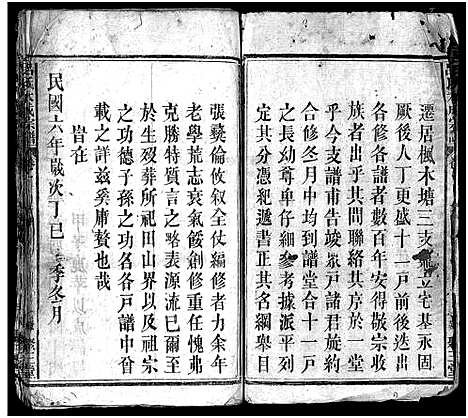 遷居楓木塘三支分立宅基永固
厥後人丁更盛十一戶前後迭出
各修各譜者數百年安得敬宗收
族者出乎其間聯絡其房於一堂
乎今支譜甫告竣衆戶諸君旋約
合修冬月中均到譜堂合十一戶
之長幼尊卑仔細參考據派平列
恭憑世次紀遞書正其名綱舉目
張彝倫攸叙全仗編修者力余年
老學荒志衰氣餒創修重任愧弗
克勝特質言之畧表源流已爾至
於生殁葬所祀田山界以及祖宗
之功德子孫之功名各戶譜中曾
載之詳兹奚庸贅也哉
皆在
民國六年歲次丁巳季冬月